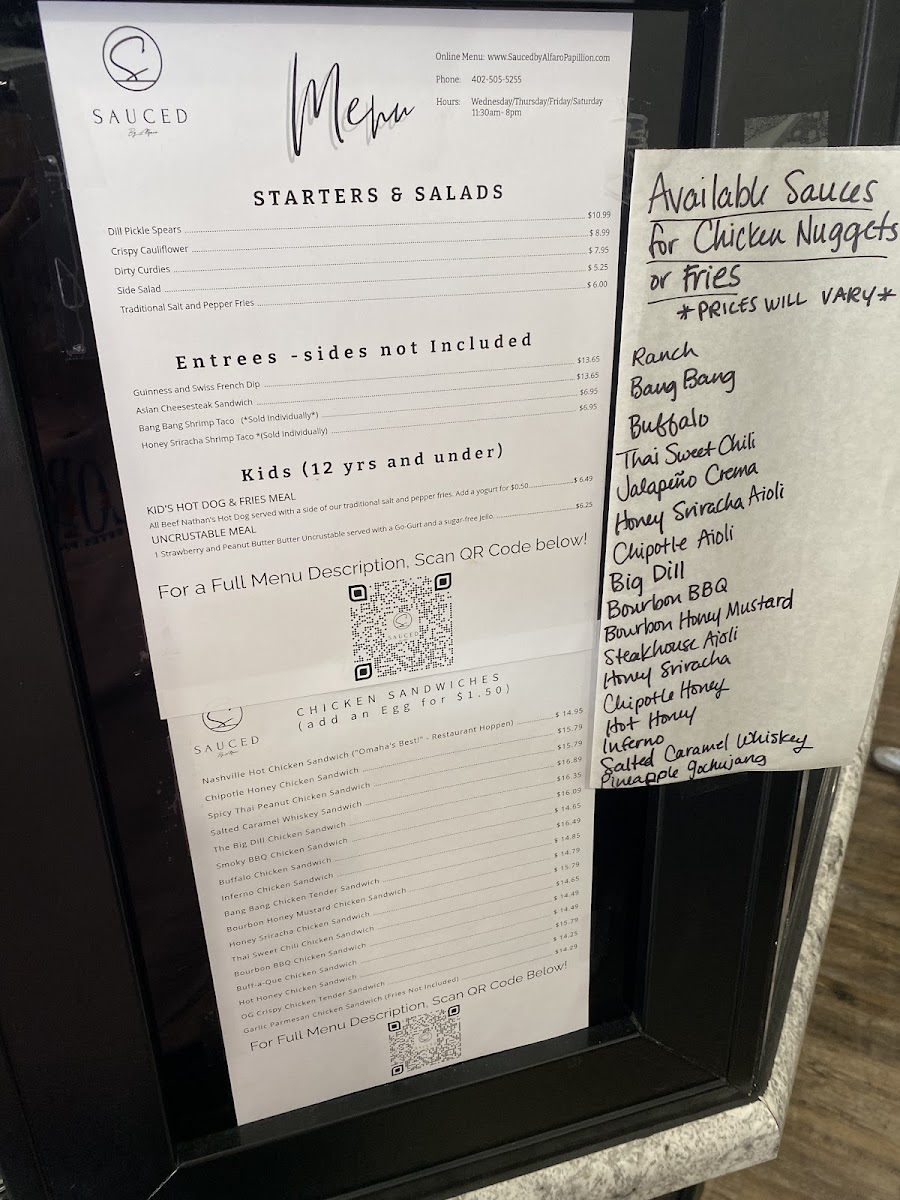 SAUCED
Menu
Online Menu: www.SaucedbyAlfaroPapillion.com
Phone: 402-505-5255
Hours: Wednesday/Thursday/Friday/Saturday
11:30am- 8pm
STARTERS & SALADS
Dill Pickle Spears $10.99
Crispy Cauliflower $ 8.99
Dirty Curdies $ 7.95
Side Salad $ 5.25
Traditional Salt and Pepper Fries $ 6.00
Entrees -sides not Included
Guinness and Swiss French Dip $13.65
Asian Cheesesteak Sandwich $13.65
Bang Bang Shrimp Taco (*Sold Individually*) $6.95
Honey Sriracha Shrimp Taco *(Sold Individually) $6.95
Kids (12 yrs and under)
KID'S HOT DOG & FRIES MEAL
All Beef Nathan's Hot Dog served with a side of our traditional salt and pepper fries. Add a yogurt for $0.50 $ 6.49
UNCRUSTABLE MEAL
1 Strawberry and Peanut Butter Butter Uncrustable served with a Go-Gurt and a sugar-free Jello. $6.25
For a Full Menu Description, Scan QR Code below!
SAUCED
SAUCED
CHICKEN SANDWICHES
(add an Egg for $1.50)
Nashville Hot Chicken Sandwich ("Omaha's Best!" - Restaurant Hoppen) $ 14.95
Chipotle Honey Chicken Sandwich $15.79
Spicy Thai Peanut Chicken Sandwich $15.79
Salted Caramel Whiskey Sandwich $16.89
The Big Dill Chicken Sandwich $16.35
Smoky BBQ Chicken Sandwich $16.09
Buffalo Chicken Sandwich $ 14.65
Inferno Chicken Sandwich $16.49
Bang Bang Chicken Tender Sandwich $ 14.85
Bourbon Honey Mustard Chicken Sandwich $ 14.79
Honey Sriracha Chicken Sandwich $ 15.79
Thai Sweet Chili Chicken Sandwich $14.65
Bourbon BBQ Chicken Sandwich $ 14.49
Buff-a-Que Chicken Sandwich $ 14.49
Hot Honey Chicken Sandwich $15.79
OG Crispy Chicken Tender Sandwich $ 14.25
Garlic Parmesan Chicken Sandwich (Fries Not Included) $14.29
For Full Menu Description, Scan QR Code Below!
Available Sauces
for Chicken Nuggets
or Fries
*PRICES WILL VARY*
Ranch
Bang Bang
Buffalo
Thai Sweet Chili
Jalapeño Crema
Honey Sriracha Aioli
Chipotle Aioli
Big Dill
Bourbon BBQ
Bourbon Honey Mustard
Steakhouse Aioli
Honey Sriracha
Chipotle Honey
Hot Honey
Inferno
Salted Caramel Whiskey
Pineapple gochujang